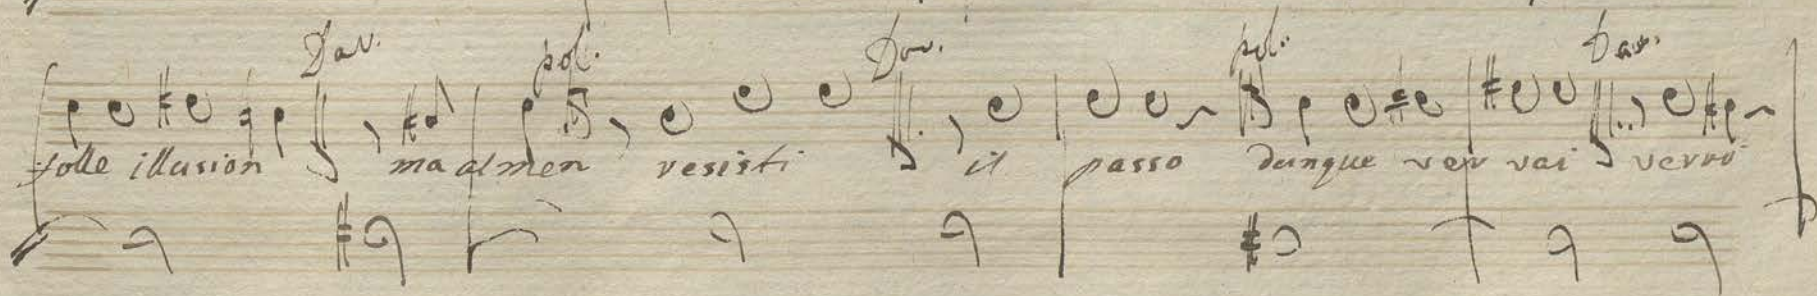 Dav. pol. Dav. pol. Dav.
folle illusion ma almen resisti il passo dunque ver vai verrò